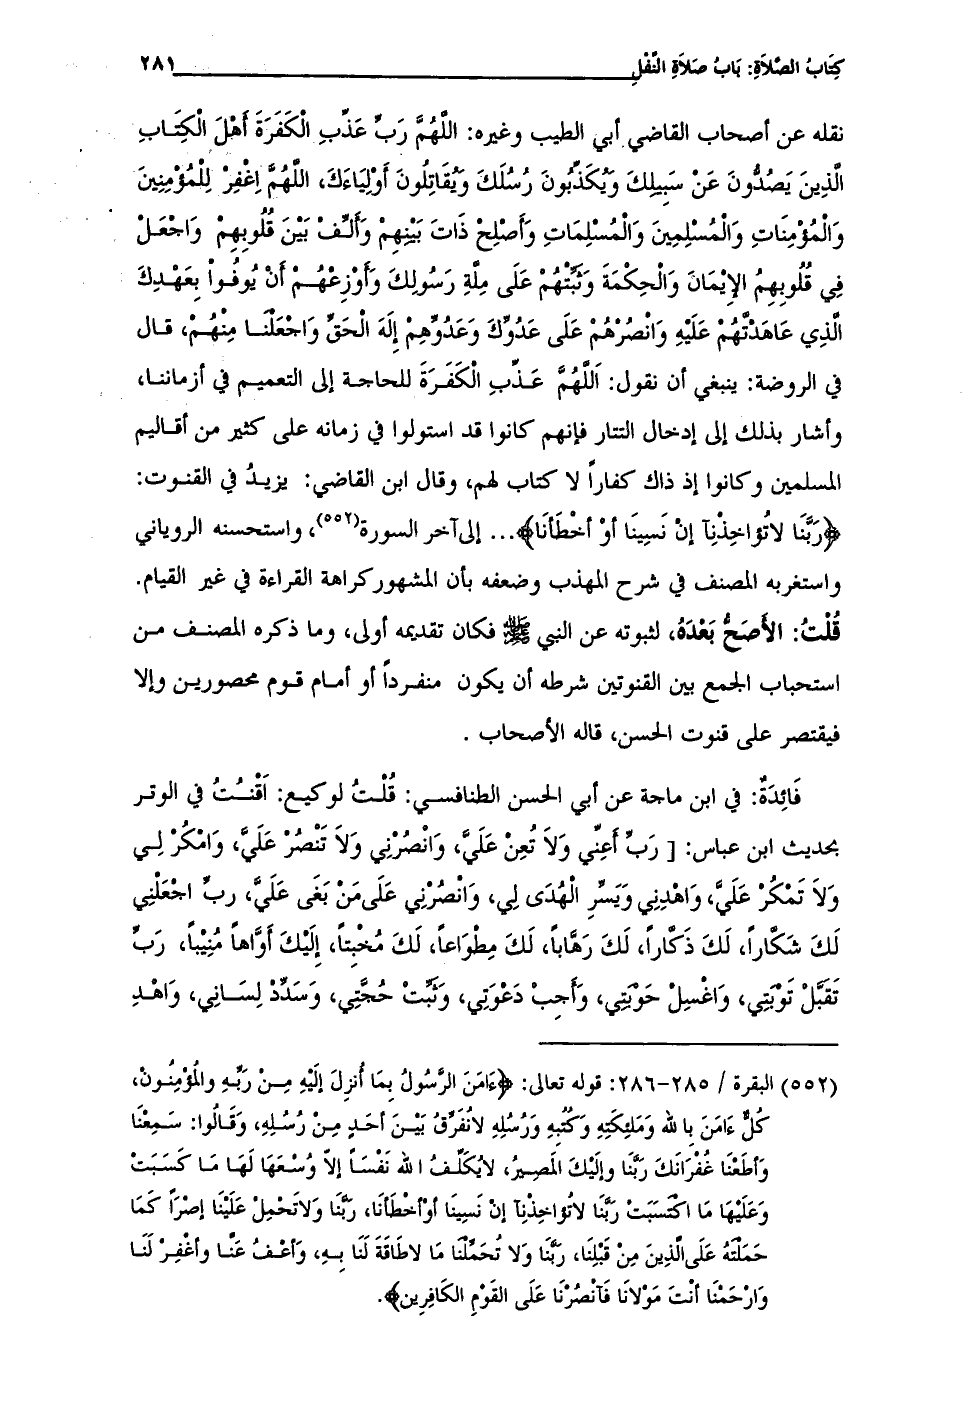 كِتَابُ الصَّلاَةِ: بَابُ صَلاَةِ النَّفْلِ ٢٨١
نقله عن أصحاب القاضي أبي الطيب وغيره: اللَّهُمَّ رَبِّ عَذِّبِ الْكَفَرَةَ أَهْلَ الْكِتَـابِ
الَّذِينَ يَصُدُّونَ عَنْ سَبِيلِكَ وَيُكَذِّبُونَ رُسُلَكَ وَيُقَاتِلُونَ أَوْلِيَاءَكَ، اللَّهُمَّ اِغْفِرْ لِلْمُؤْمِنِينَ
وَالْمُؤْمِنَاتِ وَالْمُسْلِمِينَ وَالْمُسْلِمَاتِ وَأَصْلِحْ ذَاتَ بَيْنِهِمْ وَأَلِّفْ بَيْنَ قُلُوبِهِمْ وَاجْعَلْ
فِي قُلُوبِهِمُ الإِيْمَانَ وَالْحِكْمَةَ وَثَبِّتْهُمْ عَلَى مِلَّةِ رَسُولِكَ وَأَوْزِعْهُـمْ أَنْ يُوفُـواْ بِعَهْـدِكَ
الَّذِي عَاهَدْتَّهُمْ عَلَيْهِ وَانْصُرْهُمْ عَلَى عَدُوِّكَ وَعَدُوِّهِمْ إِلَهَ الْحَقِّ وَاجْعَلْنَـا مِنْهُـمْ، قـال
في الروضة: ينبغي أن نقول: اَللَّهُمَّ عَـذِّبِ الْكَفَـرَةَ للحاجـة إلى التعميـم في أزماننـا،
وأشار بذلك إلى إدخال التتار فإنهم كانوا قد استولوا في زمانه على كثير من أقـاليم
المسلمين وكانوا إذ ذاك كفاراً لا كتاب لهم، وقال ابن القاضي: يزيـدُ في القنـوت:
﴿رَبَّنَا لاتُؤَاخِذْنِآ إِنْ نَسِينَا أَوْ أَخْطَأْنَا﴾... إلى آخر السورة(٥٥٢)، واستحسنه الروياني
واستغربه المصنف في شرح المهذب وضعفه بأن المشهور كراهة القراءة في غير القيام.
قُلْتُ: الأَصَحُّ بَعْدَهُ، لثبوته عن النبي ﷺ فكان تقديمه أولى، وما ذكره المصنـف مـن
استحباب الجمع بين القنوتين شرطه أن يكون منفـرداً أو أمـام قـوم محصوريـن وإلا
فيقتصر على قنوت الحسن، قاله الأصحاب .
فَائِدَةٌ: في ابن ماجة عن أبي الحسن الطنافسـي: قُلْـتُ لوكيـع: اَقْنُـتُ في الوتـر
بحديث ابن عباس: [ رَبِّ أَعِنِّي وَلاَ تُعِنْ عَلَيَّ، وَانْصُرْنِي وَلاَ تَنْصُرْ عَلَيَّ، وَامْكُرْ لِـي
وَلاَ تَمْكُرْ عَلَيَّ، وَاهْدِنِي وَيَسِّرِ الْهُدَى لِي، وَانْصُرْنِي عَلَى مَنْ بَغَى عَلَيَّ، ربِّ اجْعَلْنِي
لَكَ شَكَّاراً، لَكَ ذَكَّاراً، لَكَ رَهَّاباً، لَكَ مِطْوَاعاً، لَكَ مُخْبِتاً، إِلَيْكَ أَوَّاهاً مُنِيْباً، رَبِّ
تَقَبَّلْ تَوْبَتِي، وَاغْسِلْ حَوْبَتِي، وَأَجِبْ دَعْوَتِي، وَثَبِّتْ حُجَّتِي، وَسَدِّدْ لِسَـانِي، وَاهْـدِ
(٥٥٢) البقرة / ٢٨٥-٢٨٦: قوله تعالى: ﴿ءَامَنَ الرَّسُولُ بِمَا أُنزِلَ إِلَيْهِ مِـنْ رَبِّـهِ والْمُؤْمِنُـونَ،
كُلٌّ ءَامَنَ بِاللهِ وَمَلئِكَتِهِ وَكُتُبِهِ وَرُسُلِهِ لاَنُفَرِّقُ بَيْـنَ أَحَـدٍ مِـنْ رُسُـلِهِ، وَقَـالُوا: سَـمِعْنَا
وَأَطَعْنَا غُفْرَانَكَ رَبَّنَا وإِلَيْكَ الْمَصِيرُ، لاَيُكَلِّـفُ اللهُ نَفْسَـاً إِلاَّ وُسْـعَهَا لَهَـا مَـا كَسَـبَتْ
وَعَلَيْهَا مَا اكْتَسَبَتْ رَبَّنَا لاتُؤَاخِذْنِآ إِنْ نَسِينَا أَوْأَخْطَأْنَا، رَبَّنَا وَلاتَحْمِلْ عَلَيْنَا إِصْرَاً كَمَا
حَمَلْتَهُ عَلَى الَّذِينَ مِنْ قَبْلِنَا، رَبَّنَا وَلا تُحَمِّلْنَا مَا لاطَاقَةَ لَنَا بِـهِ، وَاعْـفُ عَنَّـا واغْفِـرْ لَنَـا
وَارْحَمْنَا أَنْتَ مَوْلانَا فَآنْصُرْنَا عَلَى القَوْمِ الكَافِرِين﴾.